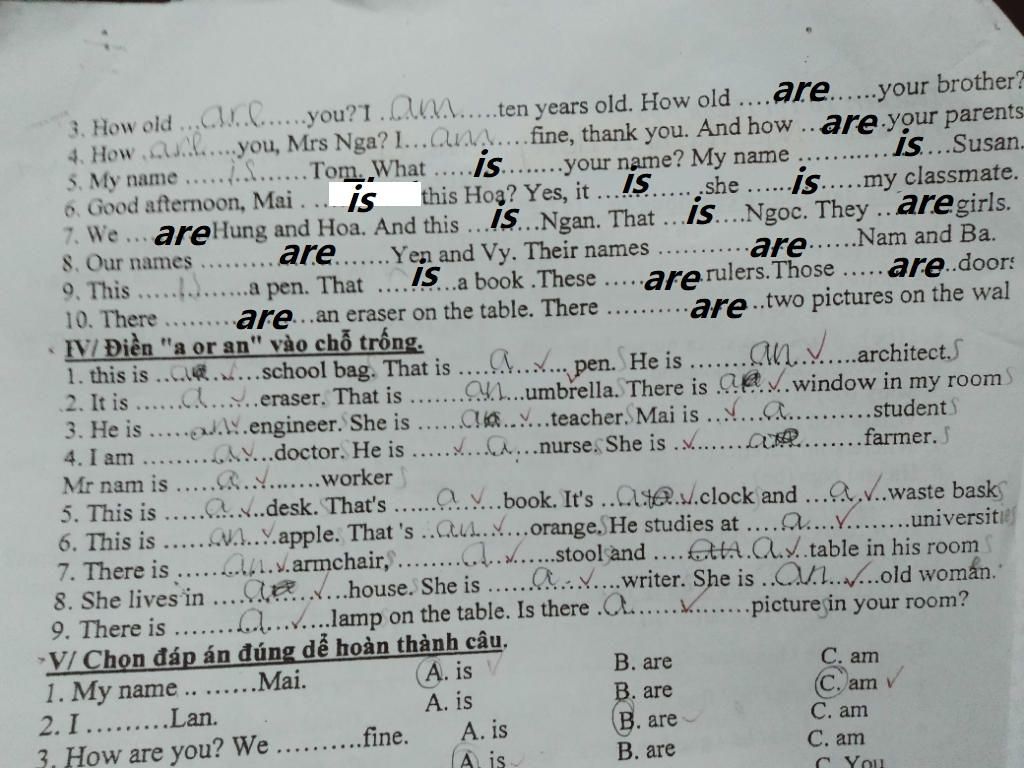 3. How old ...are......you? I .am.....ten years old. How old ....are......your brother?
4. How .are.....you, Mrs Nga? I...am....fine, thank you. And how ...are.your parents
5. My name ......is.......Tom. What .....is........your name? My name ..........is....Susan.
6. Good afternoon, Mai ... is this Hoa? Yes, it ....is......she ......is.....my classmate.
7. We ...are Hung and Hoa. And this ...is...Ngan. That ...is....Ngoc. They ..are.girls.
8. Our names .........are.......Yen and Vy. Their names ..........are......Nam and Ba.
9. This .....is.......a pen. That ....is...a book .These .....are.rulers.Those .....are..doors
10. There .........are...an eraser on the table. There ..........are...two pictures on the wal
IV/ Điền "a or an" vào chỗ trống.
1. this is ..a....school bag. That is .....a.....pen.S He is .......an.......architect.S
2. It is ......a.....eraser. That is .......an...umbrella.S There is .a...window in my room S
3. He is .....an..engineer. She is ......a.....teacher.S Mai is ....a..........student S
4. I am .........a...doctor. He is ......a...nurse.S She is .....a..........farmer.S
Mr nam is .....a........worker S
5. This is .....a...desk. That's ......a....book. It's ..a...clock and ...a..waste bask
6. This is .....an..apple. That 's ..an....orange.S He studies at ....a...........universiti
7. There is .....an..armchair,S........a......stool S and ....a..table in his room S
8. She lives in ....a.....house. She is ......a.....writer. She is ..an....old woman.
9. There is ........a....lamp on the table. Is there .a...........picture S in your room?
V/ Chọn đáp án đúng dể hoàn thành câu.
1. My name .. .......Mai. A. is B. are C. am
2. I ..........Lan. A. is B. are C. am
3. How are you? We ..........fine. A. is B. are C. am
A. is B. are C. am
C. You